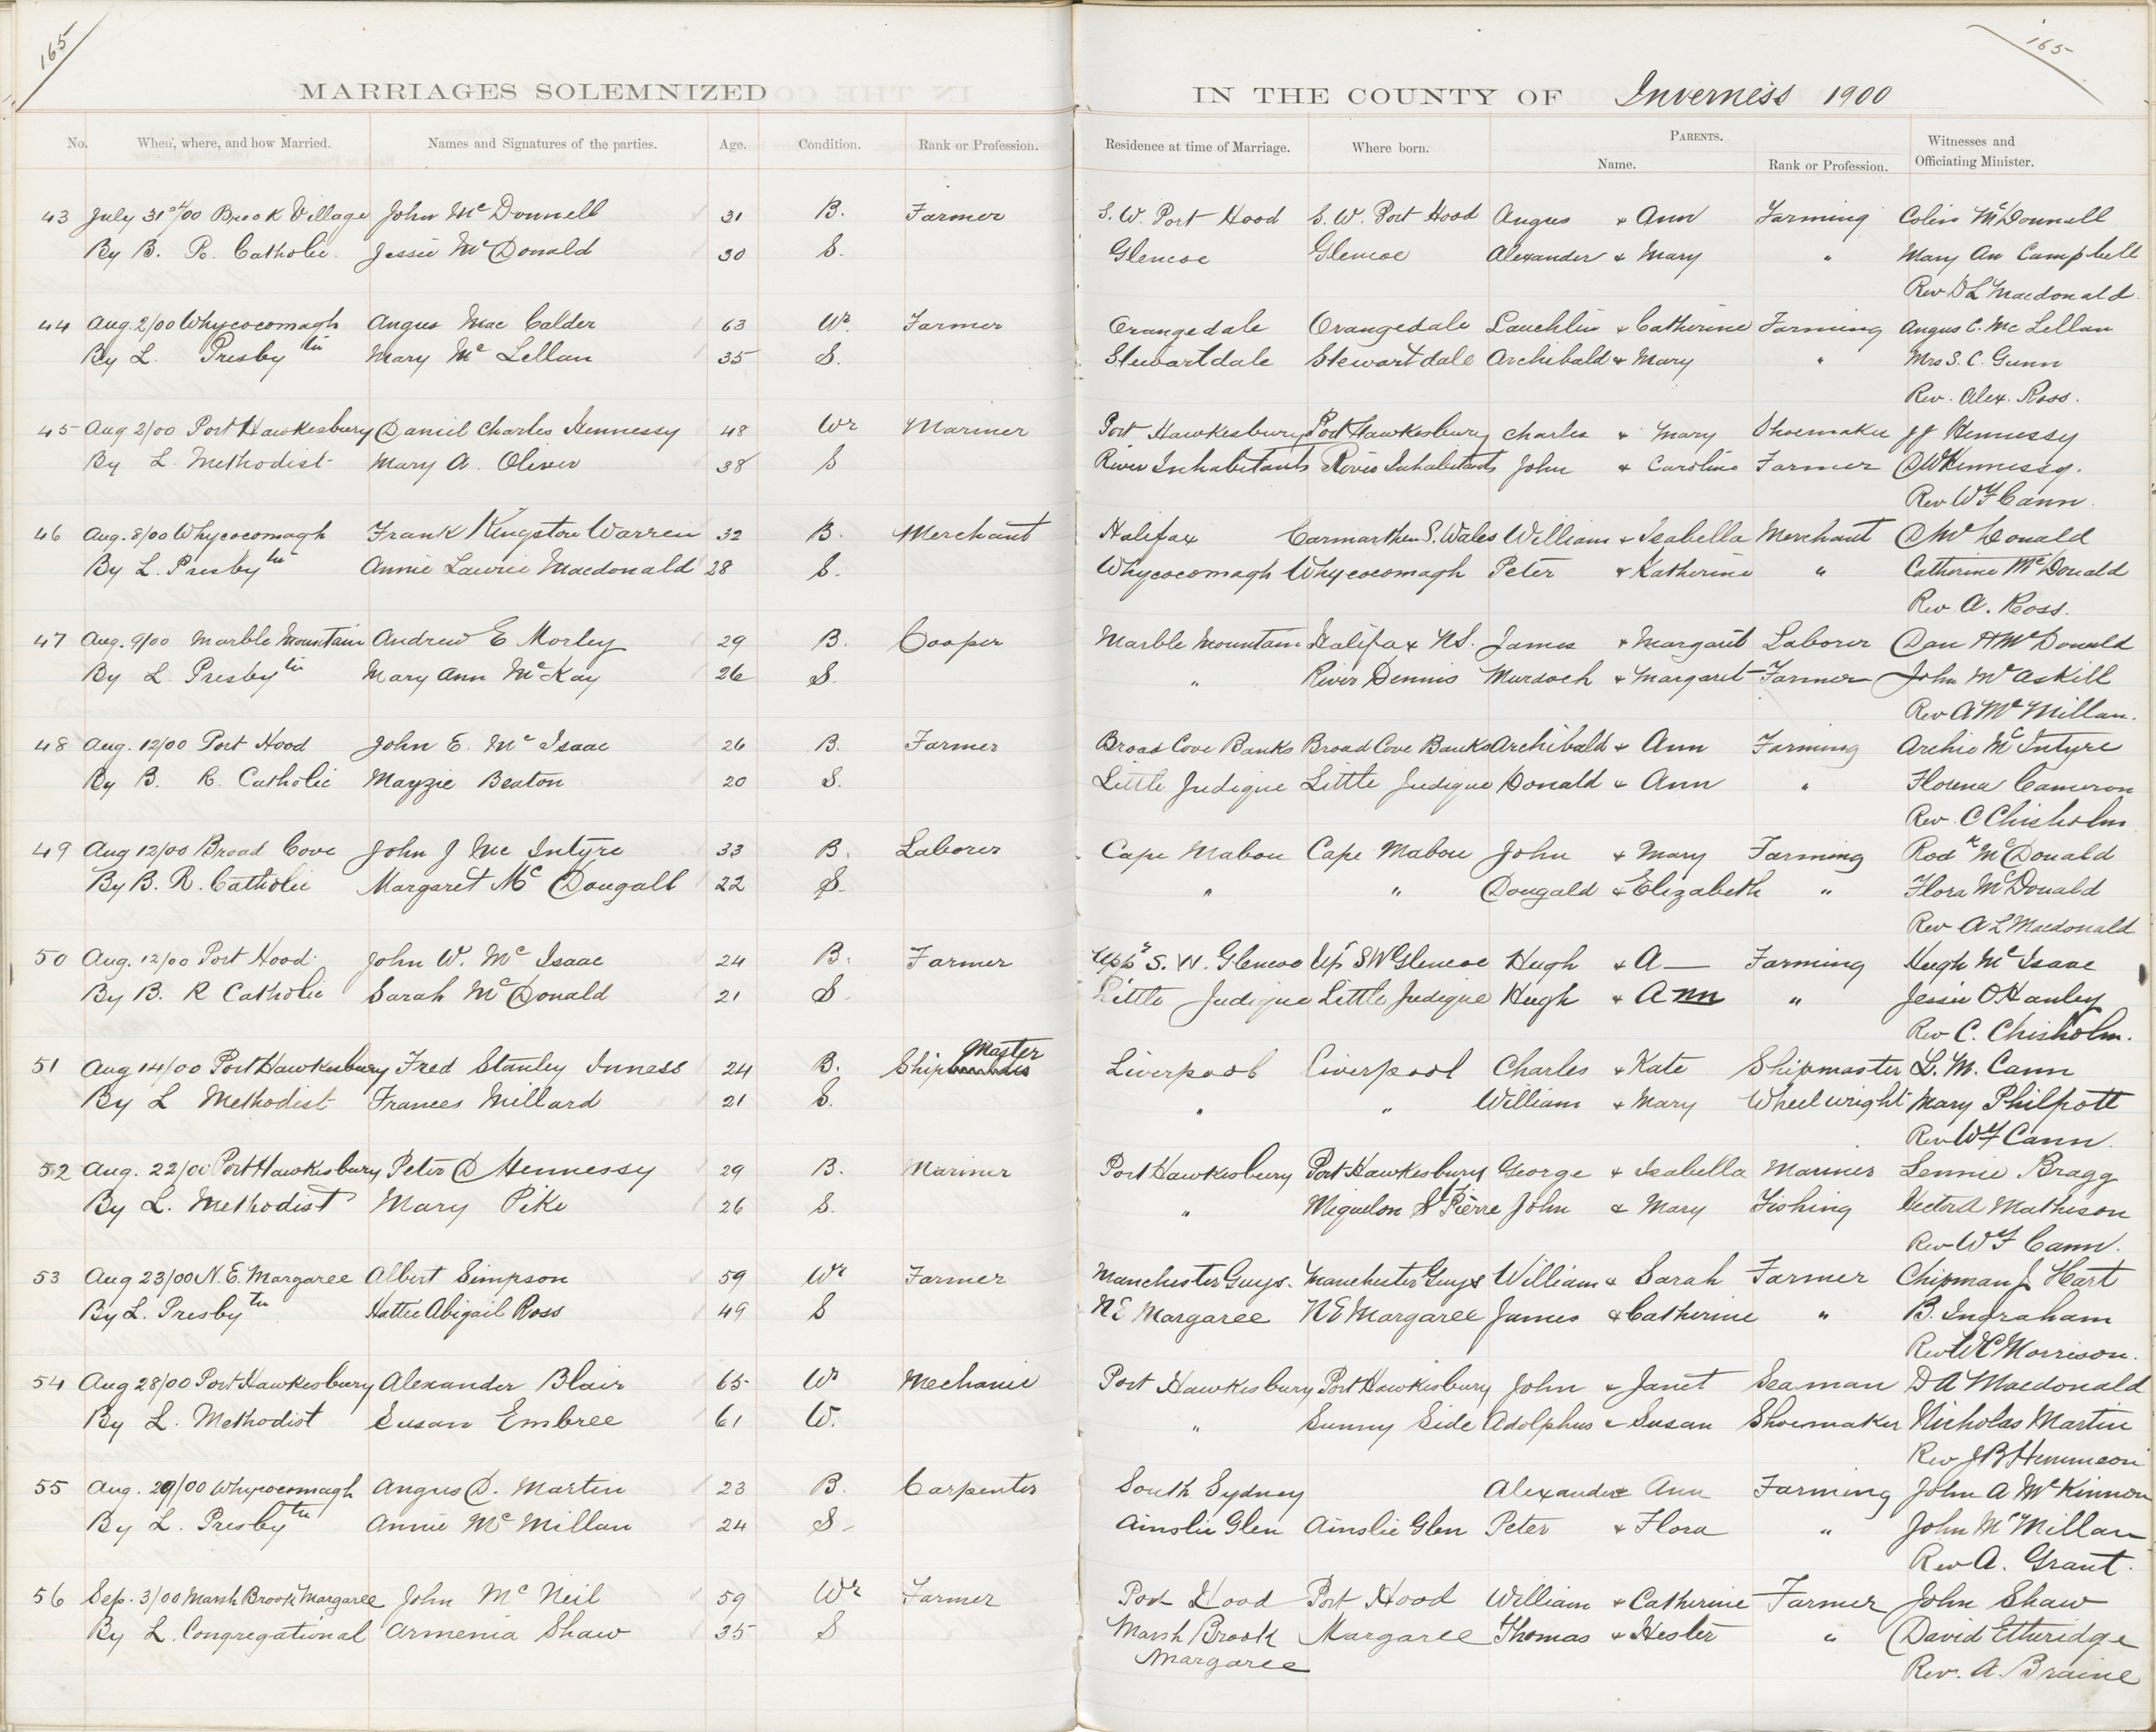 165
165
MARRIAGES SOLEMNIZED IN THE COUNTY OF Inverness 1900
No. When, where, and how Married. Names and Signatures of the parties. Age. Condition. Rank or Profession. Residence at time of Marriage. Where born. PARENTS. Name. Rank or Profession. Witnesses and Officiating Minister.
43 July 31st/00 Brook Village John Mc Donnell 31 B. Farmer S. W. Port Hood S. W. Port Hood Angus & Ann Farming Colin McDonnell
By B. R. Catholic. Jessie McDonald 30 S. Glencoe Glencoe Alexander & Mary " Mary An Campbell
Rev D L Macdonald
44 Aug. 2/00 Whycocomagh Angus Mac Calder 63 Wr. Farmer Orangedale Orangedale Lauchlin & Catherine Farming Angus C. Mc Lellan
By L. Presbytn Mary Mc Lellan 35 S. Stewartdale Stewartdale Archibald & Mary " Mrs S. C. Gunn
Rev. Alex. Ross.
45 Aug 2/00 Port Hawkesbury Daniel Charles Hennessy 48 Wr Mariner Port Hawkesbury Port Hawkesbury Charles & Mary Shoemaker J J Hennessy
By L. Methodist Mary A. Oliver 38 S River Inhabitants River Inhabitants John & Caroline Farmer D W Hennessy.
Rev W F Cann.
46 Aug. 8/00 Whycocomagh Frank Kingston Warren 32 B. Merchant Halifax Carmarthen S. Wales William & Isabella Merchant D McDonald
By L. Presbytn Annie Laurie Macdonald 28 S. Whycocomagh Whycocomagh Peter & Katherine " Catherine McDonald
Rev A. Ross.
47 Aug. 9/00 Marble Mountain Andrew E Morley 29 B. Cooper Marble Mountain Halifax NS. James & Margaret Laborer Dan H McDonald
By L. Presbytn Mary Ann McKay 26 S. " River Dennis Murdoch & Margaret Farmer John McAskill
Rev A McMillan.
48 Aug. 12/00 Port Hood John E. Mc Isaac 26 B. Farmer Broad Cove Banks Broad Cove Banks Archibald & Ann Farming Archie McIntyre
By B. R. Catholic Mayzie Beaton 20 S. Little Judique Little Judique Donald & Ann " Florena Cameron
Rev. C Chisholm
49 Aug 12/00 Broad Cove John J Mc Intyre 33 B. Laborer Cape Mabou Cape Mabou John & Mary Farming Rodk McDonald
By B. R. Catholic Margaret Mc Dougall 22 S. " " Dougald & Elizabeth " Flora McDonald
Rev A L Macdonald
50 Aug. 12/00 Port Hood. John W. Mc Isaac 24 B. Farmer Uppr S. W. Glencoe Up S W Glencoe Hugh & A— Farming Hugh McIsaac
By B. R Catholic Sarah McDonald 21 S. Little Judique Little Judique Hugh & Ann " Jessie O Hanley
Rev C. Chisholm.
51 Aug 14/00 Port Hawkesbury Fred Stanley Inness 24 B. Ship Master Liverpool Liverpool Charles & Kate Shipmaster L. M. Cann
By L Methodist Frances Millard 21 S. " " William & Mary Wheelwright Mary Philpott
Rev W F Cann.
52 Aug. 22/00 Port Hawkesbury Peter D Hennessy 29 B. Mariner Port Hawkesbury Port Hawkesbury George & Isabella Mariner Lennie Bragg
By L. Methodist Mary Pike 26 S. " Miquelon St Pierre John & Mary Fishing Hector A Matheson
Rev W F Cann.
53 Aug 23/00 N. E. Margaree Albert Simpson 59 Wr Farmer Manchester Guys. Manchester Guys William & Sarah Farmer Chipman J Hart
By L. Presbytn Hattie Abigail Ross 49 S NE Margaree NE Margaree James & Catherine " B. Ingraham
Rev W C Morrison.
54 Aug 28/00 Port Hawkesbury Alexander Blair 65 Wr Mechanic Port Hawkesbury Port Hawkesbury John & Janet Seaman D A Macdonald
By L. Methodist Susan Embree 61 W. " Sunny Side Adolphus & Susan Shoemaker Nicholas Martin
Rev J B Hemmeon
55 Aug. 29/00 Whycocomagh Angus D. Martin 23 B. Carpenter South Sydney Alexander & Ann Farming John A McKinnon
By L. Presbytn Annie McMillan 24 S. Ainslie Glen Ainslie Glen Peter & Flora " John McMillan
Rev A. Grant.
56 Sep. 3/00 Marsh Brook Margaree John Mc Neil 59 Wr Farmer Port Hood Port Hood William & Catherine Farmer John Shaw
By L. Congregational Armenia Shaw 35 S Marsh Brook Margaree Margaree Thomas & Hester " David Etheridge
Rev. A. Braine